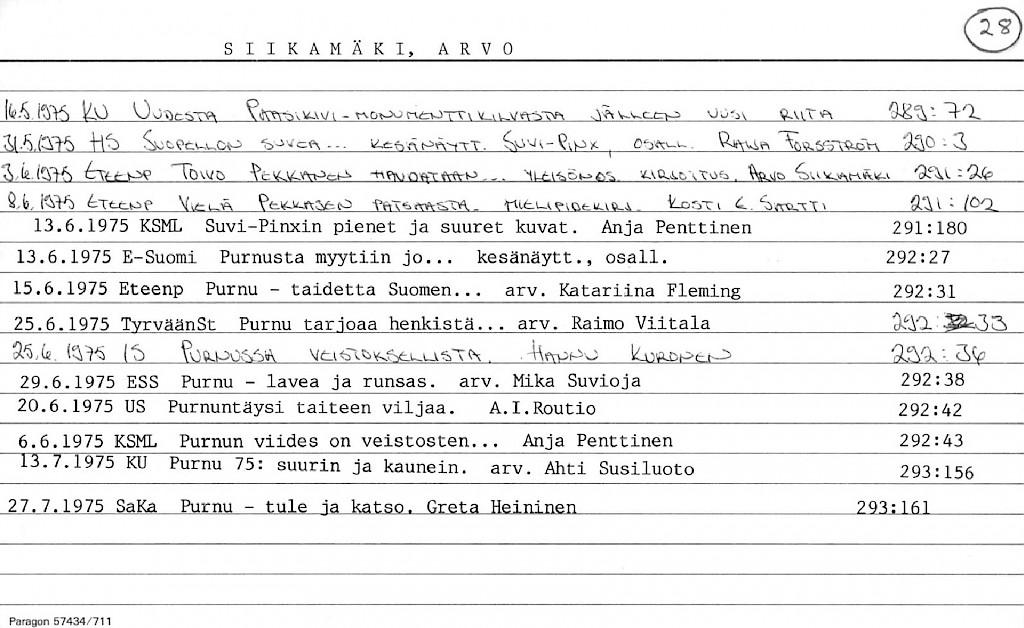 28
SIIKAMÄKI, ARVO
16.5.1975 KU UUDESTA PAASIKIVI-MONUMENTTIKILVASTA JÄLLEEN UUSI RIITA 289:72
31.5.1975 HS SUOPELLON SUVEA... KESÄNÄYTT. SUVI-PINX, OSALL. RAIJA FORSSTRÖM 290:3
3.6.1975 ETEENP TOIVO PEKKANEN HAUDATAAN... YLEISÖNOS. KIRJOITUS. ARVO SIIKAMÄKI 291:26
8.6.1975 ETEENP VIELÄ PEKKASEN PATSAASTA. MIELIPIDEKIRJ. KOSTI E. SARTTI 291:102
13.6.1975 KSML Suvi-Pinxin pienet ja suuret kuvat. Anja Penttinen 291:180
13.6.1975 E-Suomi Purnusta myytiin jo... kesänäytt., osall. 292:27
15.6.1975 Eteenp Purnu - taidetta Suomen... arv. Katariina Fleming 292:31
25.6.1975 TyrväänSt Purnu tarjoaa henkistä... arv. Raimo Viitala 292:33
25.6.1975 IS PURNUSSA VEISTOKSELLISTA. HANNU KURONEN 292:36
29.6.1975 ESS Purnu - lavea ja runsas. arv. Mika Suvioja 292:38
20.6.1975 US Purnuntäysi taiteen viljaa. A.I.Routio 292:42
6.6.1975 KSML Purnun viides on veistosten... Anja Penttinen 292:43
13.7.1975 KU Purnu 75: suurin ja kaunein. arv. Ahti Susiluoto 293:156
27.7.1975 SaKa Purnu - tule ja katso. Greta Heininen 293:161
Paragon 57434/711